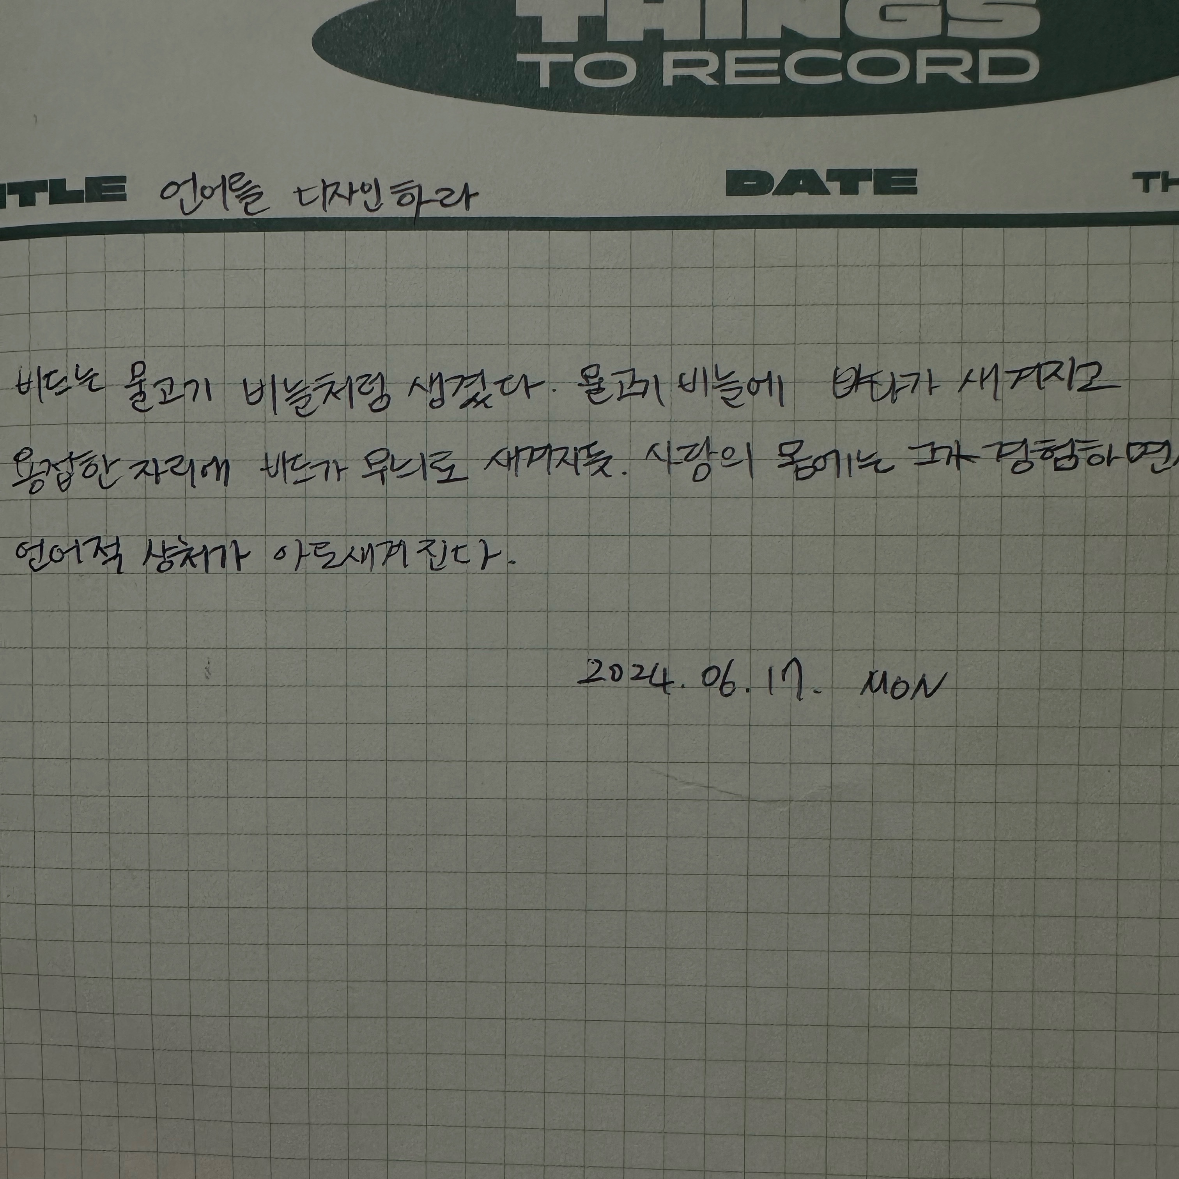 THINGS
TO RECORD
TITLE 언어를 디자인하라 DATE TH
비드는 물고기 비늘처럼 생겼다. 물고기 비늘에 바다가 새겨지고
용접한 자리에 비드가 무늬로 새겨지듯. 사람의 몸에는 그가 경험하면
언어적 상처가 아로새겨진다.
2024. 06. 17. MON